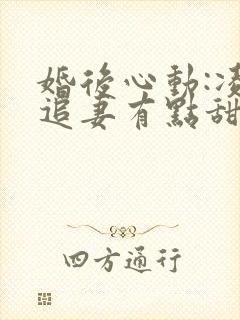 婚後心動:凌
追妻有點甜
四方通行